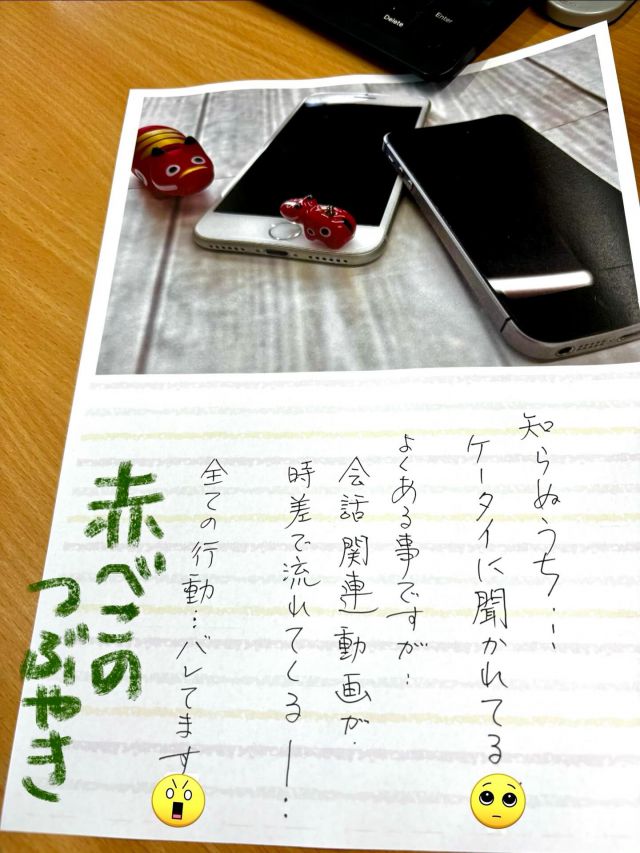 Delete
Enter
知らぬうち・・・
ケータイに聞かれてる
よくある事ですが・・
会話関連動画が
時差で流れてくるー・・
全ての行動・・・バレてます
赤べこの
つぶやき